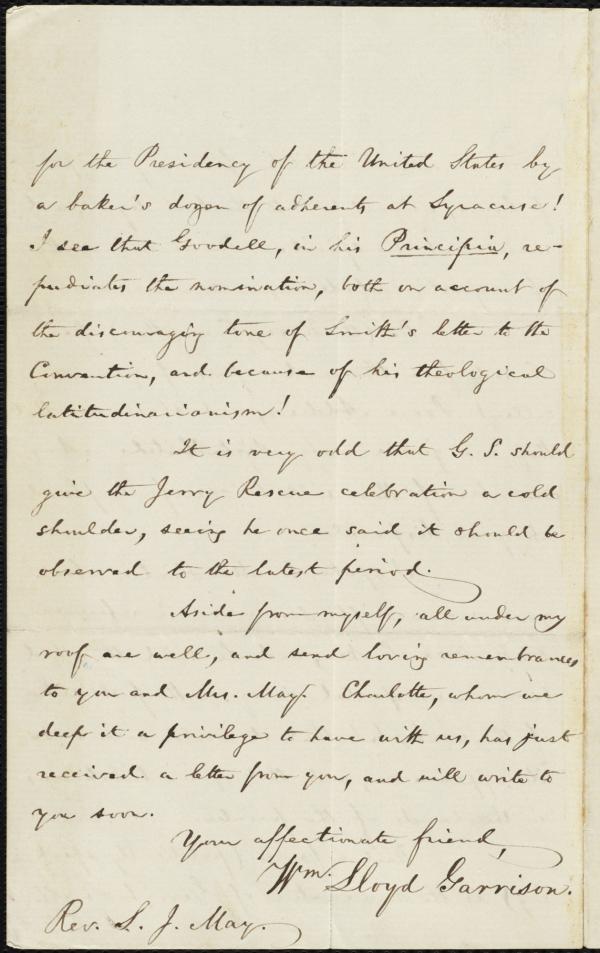 for the Presidency of the United States by
a baker's dozen of adherents at Syracuse!
I see that Goodell, in his Principia, re-
pudiates the nomination, both on account of
the discouraging tone of Smith's letter to the
Convention, and because of his theological
latitudinarianism!
It is very odd that G. S. should
give the Jerry Rescue celebration a cold
shoulder, seeing he once said it should be
observed to the latest period.
Aside from myself, all under my
roof are well, and send loving remembrances
to you and Mrs. May. Charlotte, whom we
deep it a privilege to have with us, has just
received a letter from you, and will write to
you soon.
Your affectionate friend,
Wm. Lloyd Garrison.
Rev. S. J. May.